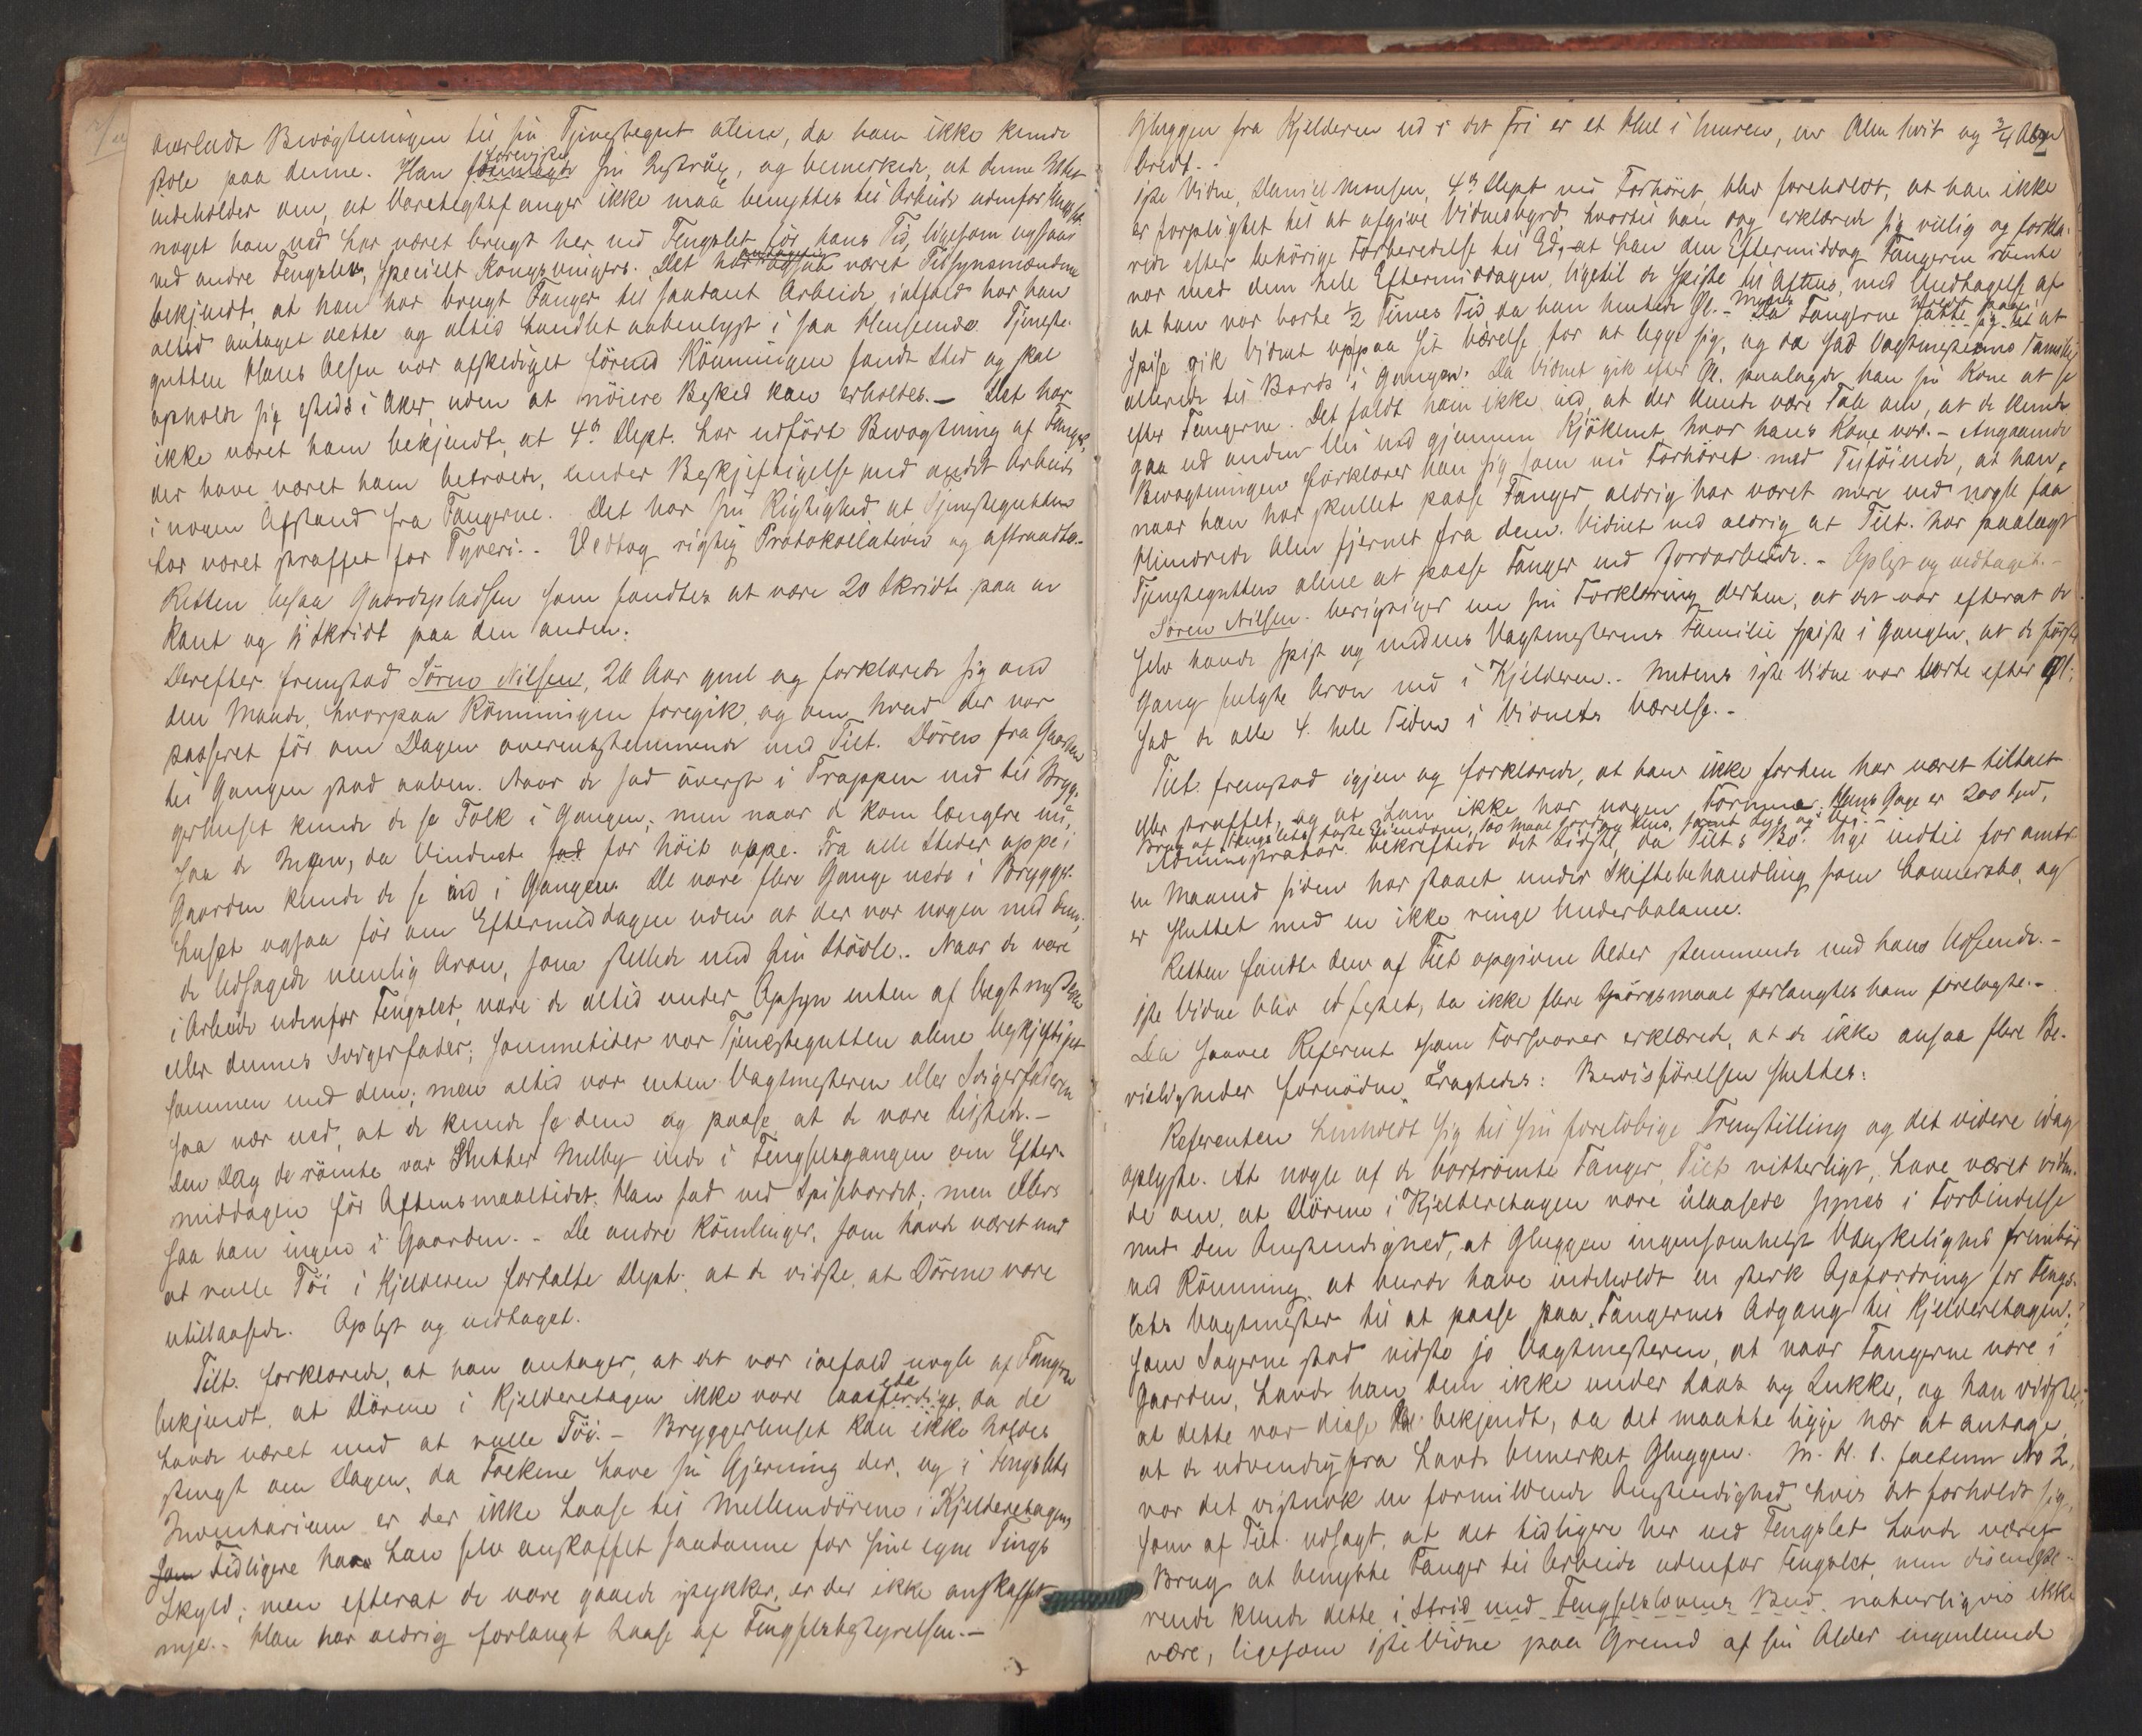 overladt Bevogtningen til sin Tjenestegut alene, da han ikke kunde
stole paa denne. Han foreviste fremlagde sin Instrux, og bemerkede, at denne Intet
indeholder om, at Varetægtsfanger ikke maa benyttes til Arbeide udenfor
noget han ved har været brugt her ved Fengslet før hans Tid, ligesom ogsaa
ved andre Fengsler, specielt Kongsvingers. Det har ogsaa været Tilsynsmændene
bekjendt, at han har brugt Fanger til saadant Arbeide, ialfald har han
altid antaget dette og altid handlet aabenlyst i saa Henseende. Tjeneste-
gutten Hans Olsen var afskediget førend Rømningen fandt Sted og skal
opholde sig etsteds i Aker, uden at nøiere Besked kan erholdes. — Det har
ikke været ham bekjendt, at 4de Dept. har udført Bevogtning af Fanger,
der have været ham betroede, under Beskjeftigelse med andet Arbeide
i nogen Afstand fra Fangerne. Det har sin Rigtighed at Tjenestegutten
har været straffet for Tyveri. - Vedtog rigtig Protokollation og aftraadte.
Retten besaa Gaardspladsen som fandtes at være 20 Skridt paa en
Kant og Skridt paa den anden.
Derefter fremstod Sören Nilsen, 26 Aar gml og forklarede sig om
den Maade, hvorpaa Rømningen foregik, og om hvad der var
passeret før om Dagen overensstemmende med Tilt. Døren fra Gaarden
til Gangen stod aaben. Naar de sad øverst i Trappen ned til Bryg-
gerhuset kunde de se Folk i Gangen, men naar de kom længere ned,
saa de Ingen, da Vinduet sad for høit oppe. Fra alle Steder oppe i
Gaarden kunde de se ind i Gangen. De vare flere Gange nede i Brygger-
huset ogsaa før om Eftermiddagen uden at der var nogen med dem,
de Udsagde nemlig Aron, som stellede med sin Støvle. - Naar de vare
i Arbeide udenfor Fengslet, vare de altid under Opsyn enten af Vagtmesteren
eller dennes Svigerfader; sommetider var Tjenestegutten alene beskjeftiget
sammen med dem; men altid var enten Vagtmesteren eller Svigerfaderen
saa nær ved, at de kunde se dem og passe, at de vare tilstede. -
Den Dag de rømte var Slutter Melby inde i Fengselsgangen om Efter-
middagen før Aftensmaaltidet. Han sad ved Spisebordet; men ellers
saa han ingen i Gaarden. - De andre Rømlinger, som havde været med
at rulle Tøi i Kjelderen fortalte Dept. at de vidste, at Dörene vare
utillaasede. Oplest og vedtaget.
Tilt. forklarede, at han antager, at det var ialfald nogle af Fangerne
bekjendt, at Dörene i Kjelderetagen ikke vare laasede, da de
havde været med at rulle Tøi. - Bryggerhuset kan ikke holdes
stengt om Dagen, da Folkene have sin Gjerning der, og i Fengslets
Inventarium er der ikke Laase til Mellemdørene i Kjelderetagen,
Som Tidligere har han selv anskaffet saadanne for sine egne Tings
Skyld; men efterat de vare gaaede istykker, er der ikke anskaffet
nye. - Han har aldrig forlangt Laase af Fengselsbestyrelsen. -
Gluggen fra Kjelderen ud i det Fri er et Hul i Muren, en Alen hvit og 3/4 Alen
bredt. -
1ste Vidne, Daniel Monsen, 4de Dept ved Forhöret, blev foreholdt, at han ikke
er forpligtet til at afgive Vidnesbyrd hvortil han dog erklærede sig villig og forkla-
rede efter behörige Forberedelse til Ed, at han den Eftermiddag Fangerne rømte
var med dem hele Eftermiddagen, ligetil de spiste til Aftens, med Undtagelse af
at han var borte 1/2 Times Tid da han hentede Öl. - Da Fangerne satte sig til at
spise gik Vidnet op paa sit Værelse for at legge sig, og da sad Vagtmesterens Familie
allerede til Bords i Gangen. Da Vidnet gik efter Öl. paalagde han sin Kone at se
efter Fangerne. Det faldt ham ikke ind, at der kunde være Tale om, at de kunde
gaa ud anden Vei end gjennem Kjökkenet hvor hans Kone var. - Angaaende
Bevogtningen forklarer han sig som ved Forhöret med Tilföiende, at han,
naar han har skullet passe Fanger aldrig har været mere end nogle faa
Hundrede Alen fjernet fra dem. Vidnet ved aldrig at Tilt. har paalagt
Tjenestegutten alene at passe Fanger ved Jordarbeide. - Oplest og vedtaget. -
Sören Nilsen berigtiger nu sin Forklaring derhen, at det var efterat de
selv havde spist og medens Vagtmesterens Familie spiste i Gangen, at de første
Gang fulgte Aron ned i Kjelderen. - Medens 1ste Vidne var borte efter Öl.
sad de alle 4. hele Tiden i Vidnets Værelse. -
Tilt. fremstod igjen og forklarede, at han ikke forhen har været tiltalt
eller straffet, og at han ikke har nogen Formue. Hans Gage er 200 Spd,
Brug af Fengslets faste Eiendom, 
Administrator bekreftede det sidste, da Tilt.s Bo. lige indtil for omtr.
en Maaned siden har staaet under Skiftebehandling som Concursbo, og
er sluttet med en ikke ringe Underbalance.
Retten fandt den af Tilt. opgivne Alder stemmende med hans Udseende. -
1ste Vidne blev edfestet, da ikke flere Spörgsmaal forlangtes ham forelagte. -
Da saavel Referent som Forsvarer erklærede, at de ikke ansaa flere Be-
visligheder fornødne, Eragtedes: Bevisførelsen sluttes:
Referenten henholdt sig til sin foreløbige Fremstilling og det videre idag
oplyste. At nogle af de bortrømte Fanger, Tilt. vitterligt, have været viden-
de om, at Dørene i Kjelderetagen vare ulaasede synes i Forbindelse
med den Omstendighed, at Gluggen ingensomhelst Vanskelighed frembød
ved Rømning at burde have indeholdt en sterk Opfordring for Fengs-
lets Vagtmester til at passe paa Fangernes Adgang til Kjelderetagen;
som Sagerne stod vidste jo Vagtmesteren, at naar Fangerne vare i
Gaarden, havde han dem ikke under Laas og Lukke, og han vidste,
at dette var disse bekjendt, da det maatte ligge nær at antage,
at de udvendig fra havde bemerket Gluggen. M. H. t. factum No 2,
var det vistnok en formildende Omstendighed, hvis det forholdt sig,
som af Tilt. udsagt, at det tidligere her ved Fengslet havde været
Brug at benytte Fanger til Arbeide udenfor Fengslet, men disculpe-
rende kunde dette i Strid med Fengselslovens Bud naturligvis ikke
være, ligesom 1ste Vidne paa Grund af sin Alder ingenlunde